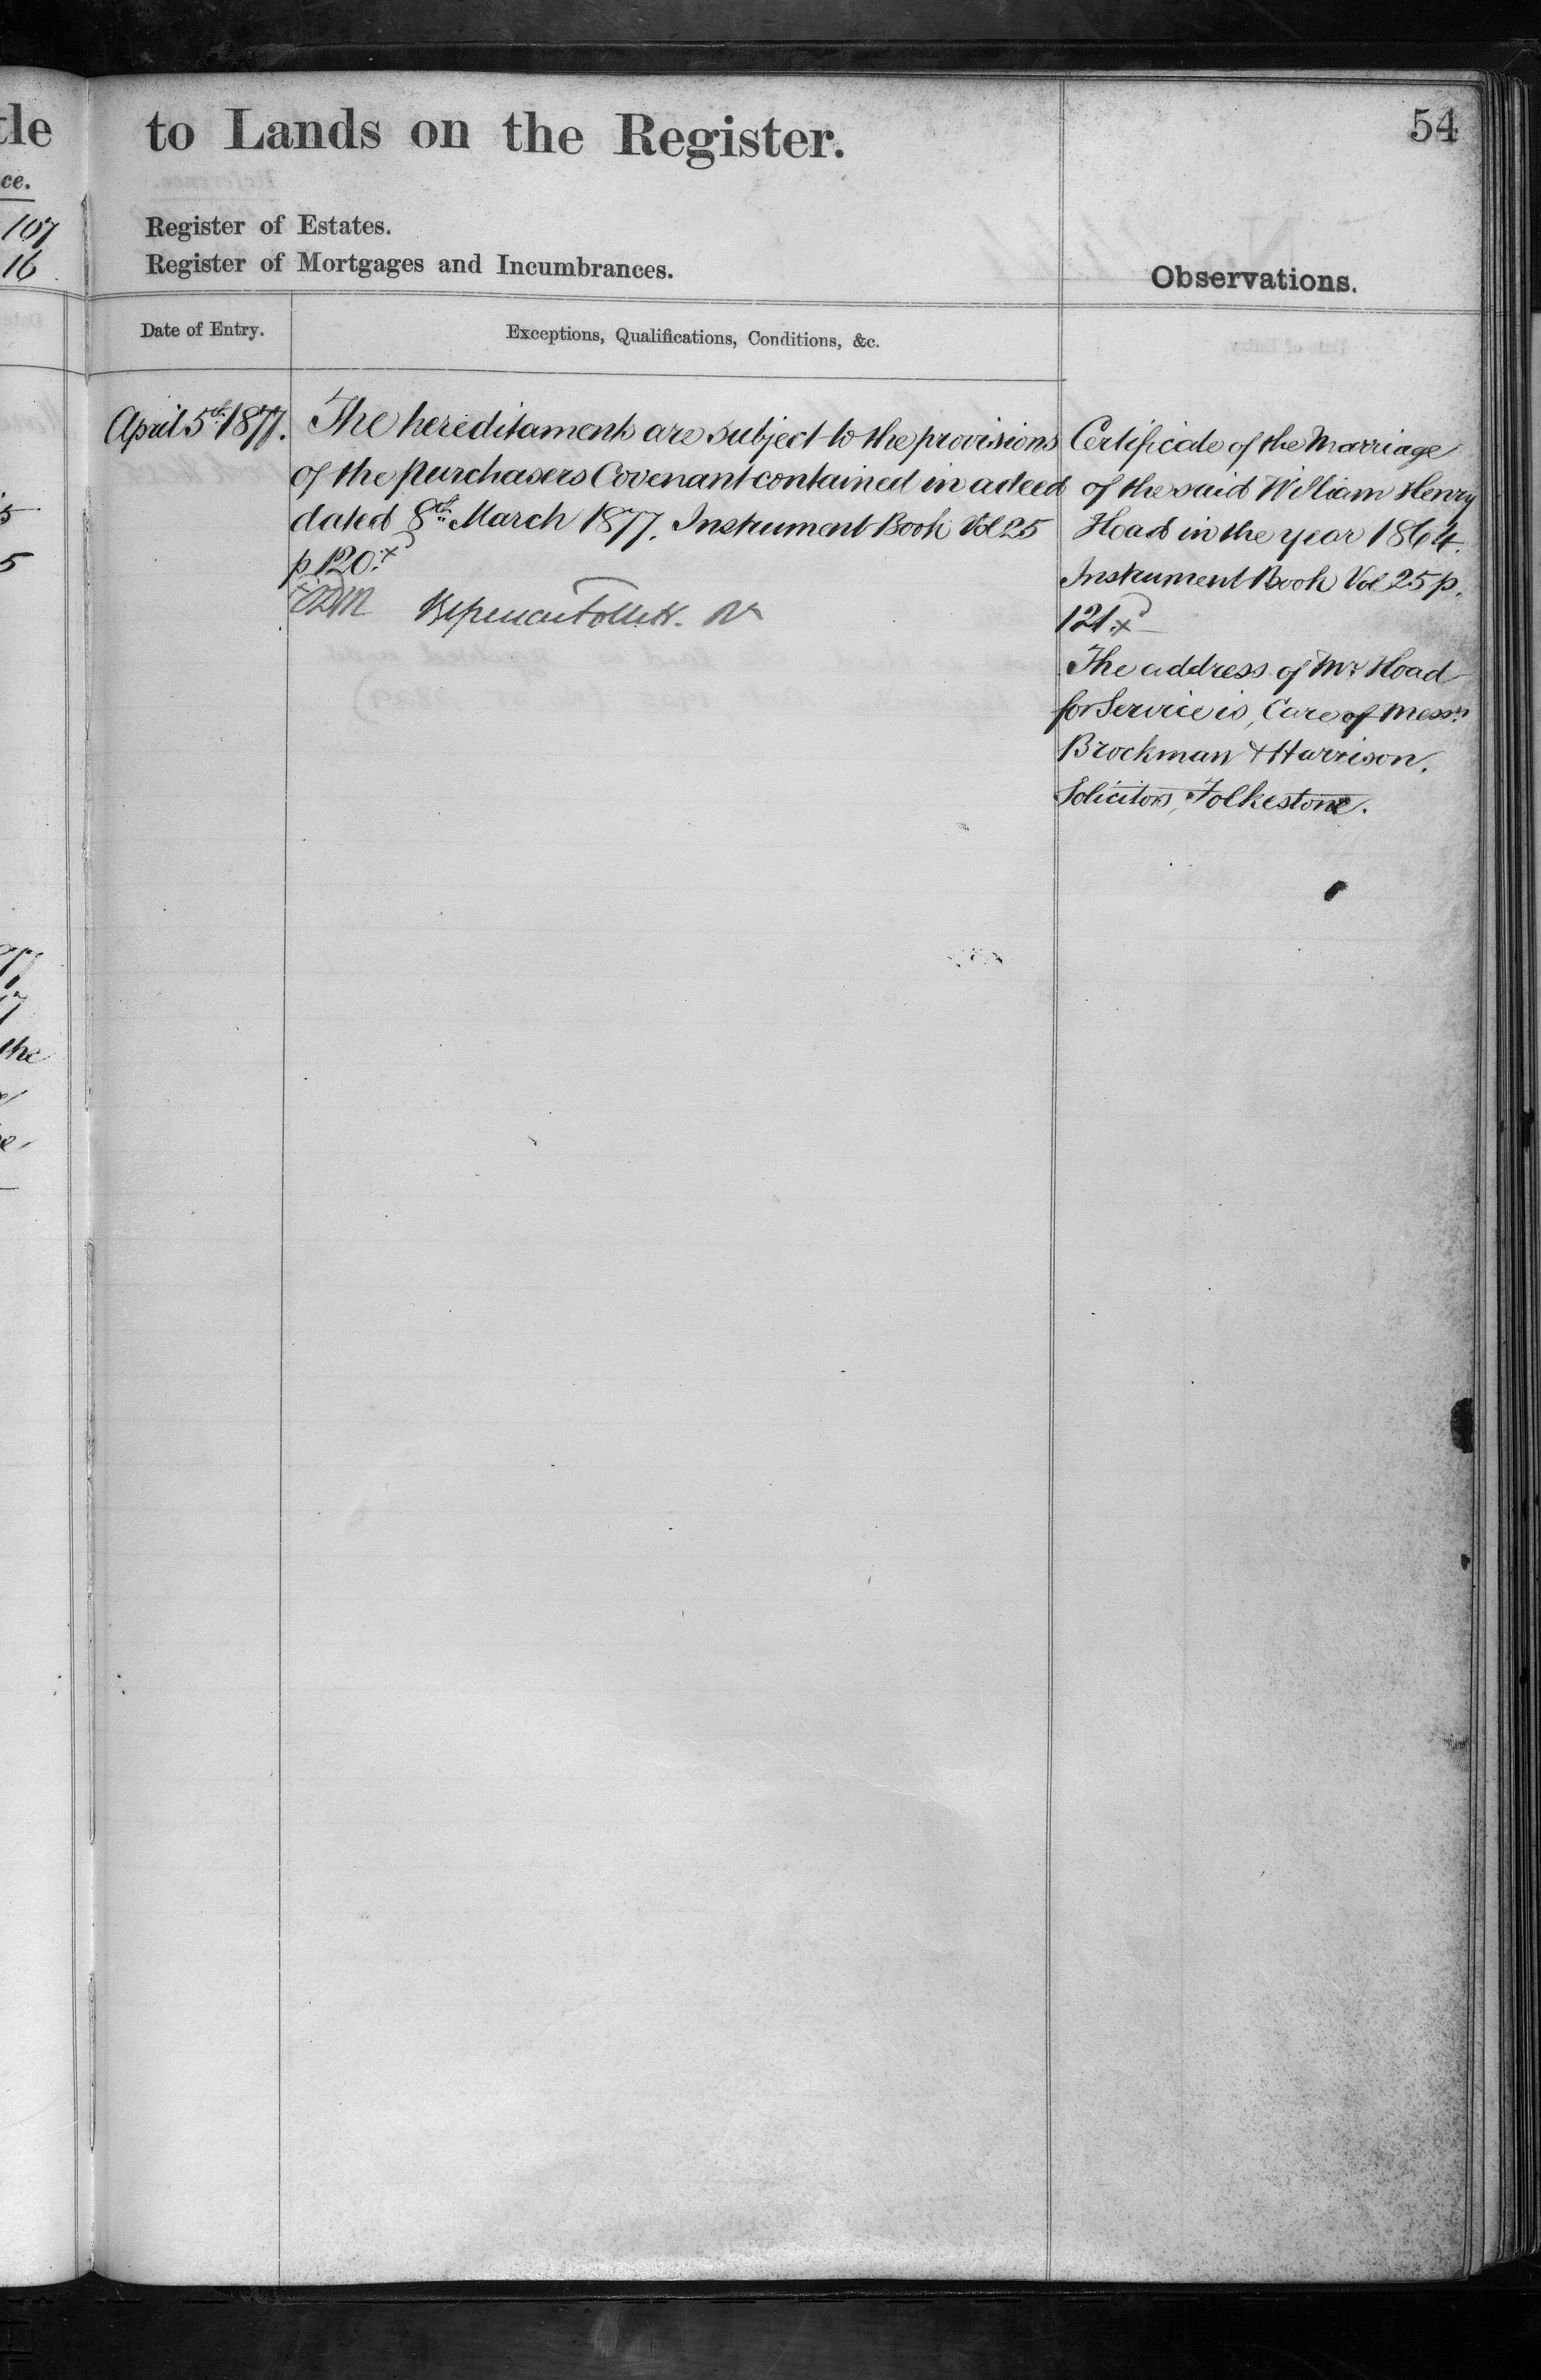 to Lands on the Register.
54
Register of Estates.
Register of Mortgages and Incumbrances.
Observations.
Date of Entry.
Exceptions, Qualifications, Conditions, &c.
April 5th 1877.
The hereditaments are subject to the provisions
of the purchasers Covenant contained in a deed
dated 8th March 1877. Instrument Book Vol 25
p 120. x
Certificate of the Marriage
of the said William Henry
Hoad in the year 1864.
Instrument Book Vol 25 p.
121. x
The address of Mr Hoad
for Service is, Care of Messrs
Brockman & Harrison.
Solicitors, Folkestone.
tle
ce.
107
16
5
5
the